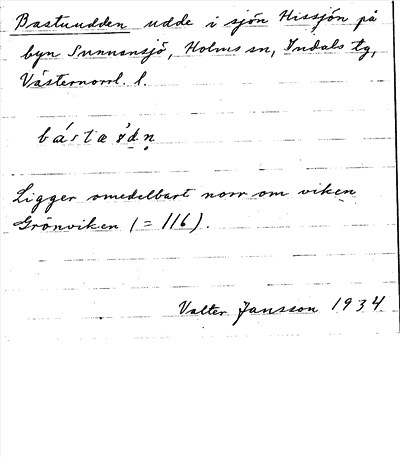 Bastuudden udde i sjön Hissjön på
byn Sunnansjö, Holms sn, Indals tg,
Västernorrl. l.
Ligger omedelbart norr om viken
Grönviken (= 116).
Valter Jansson 1934